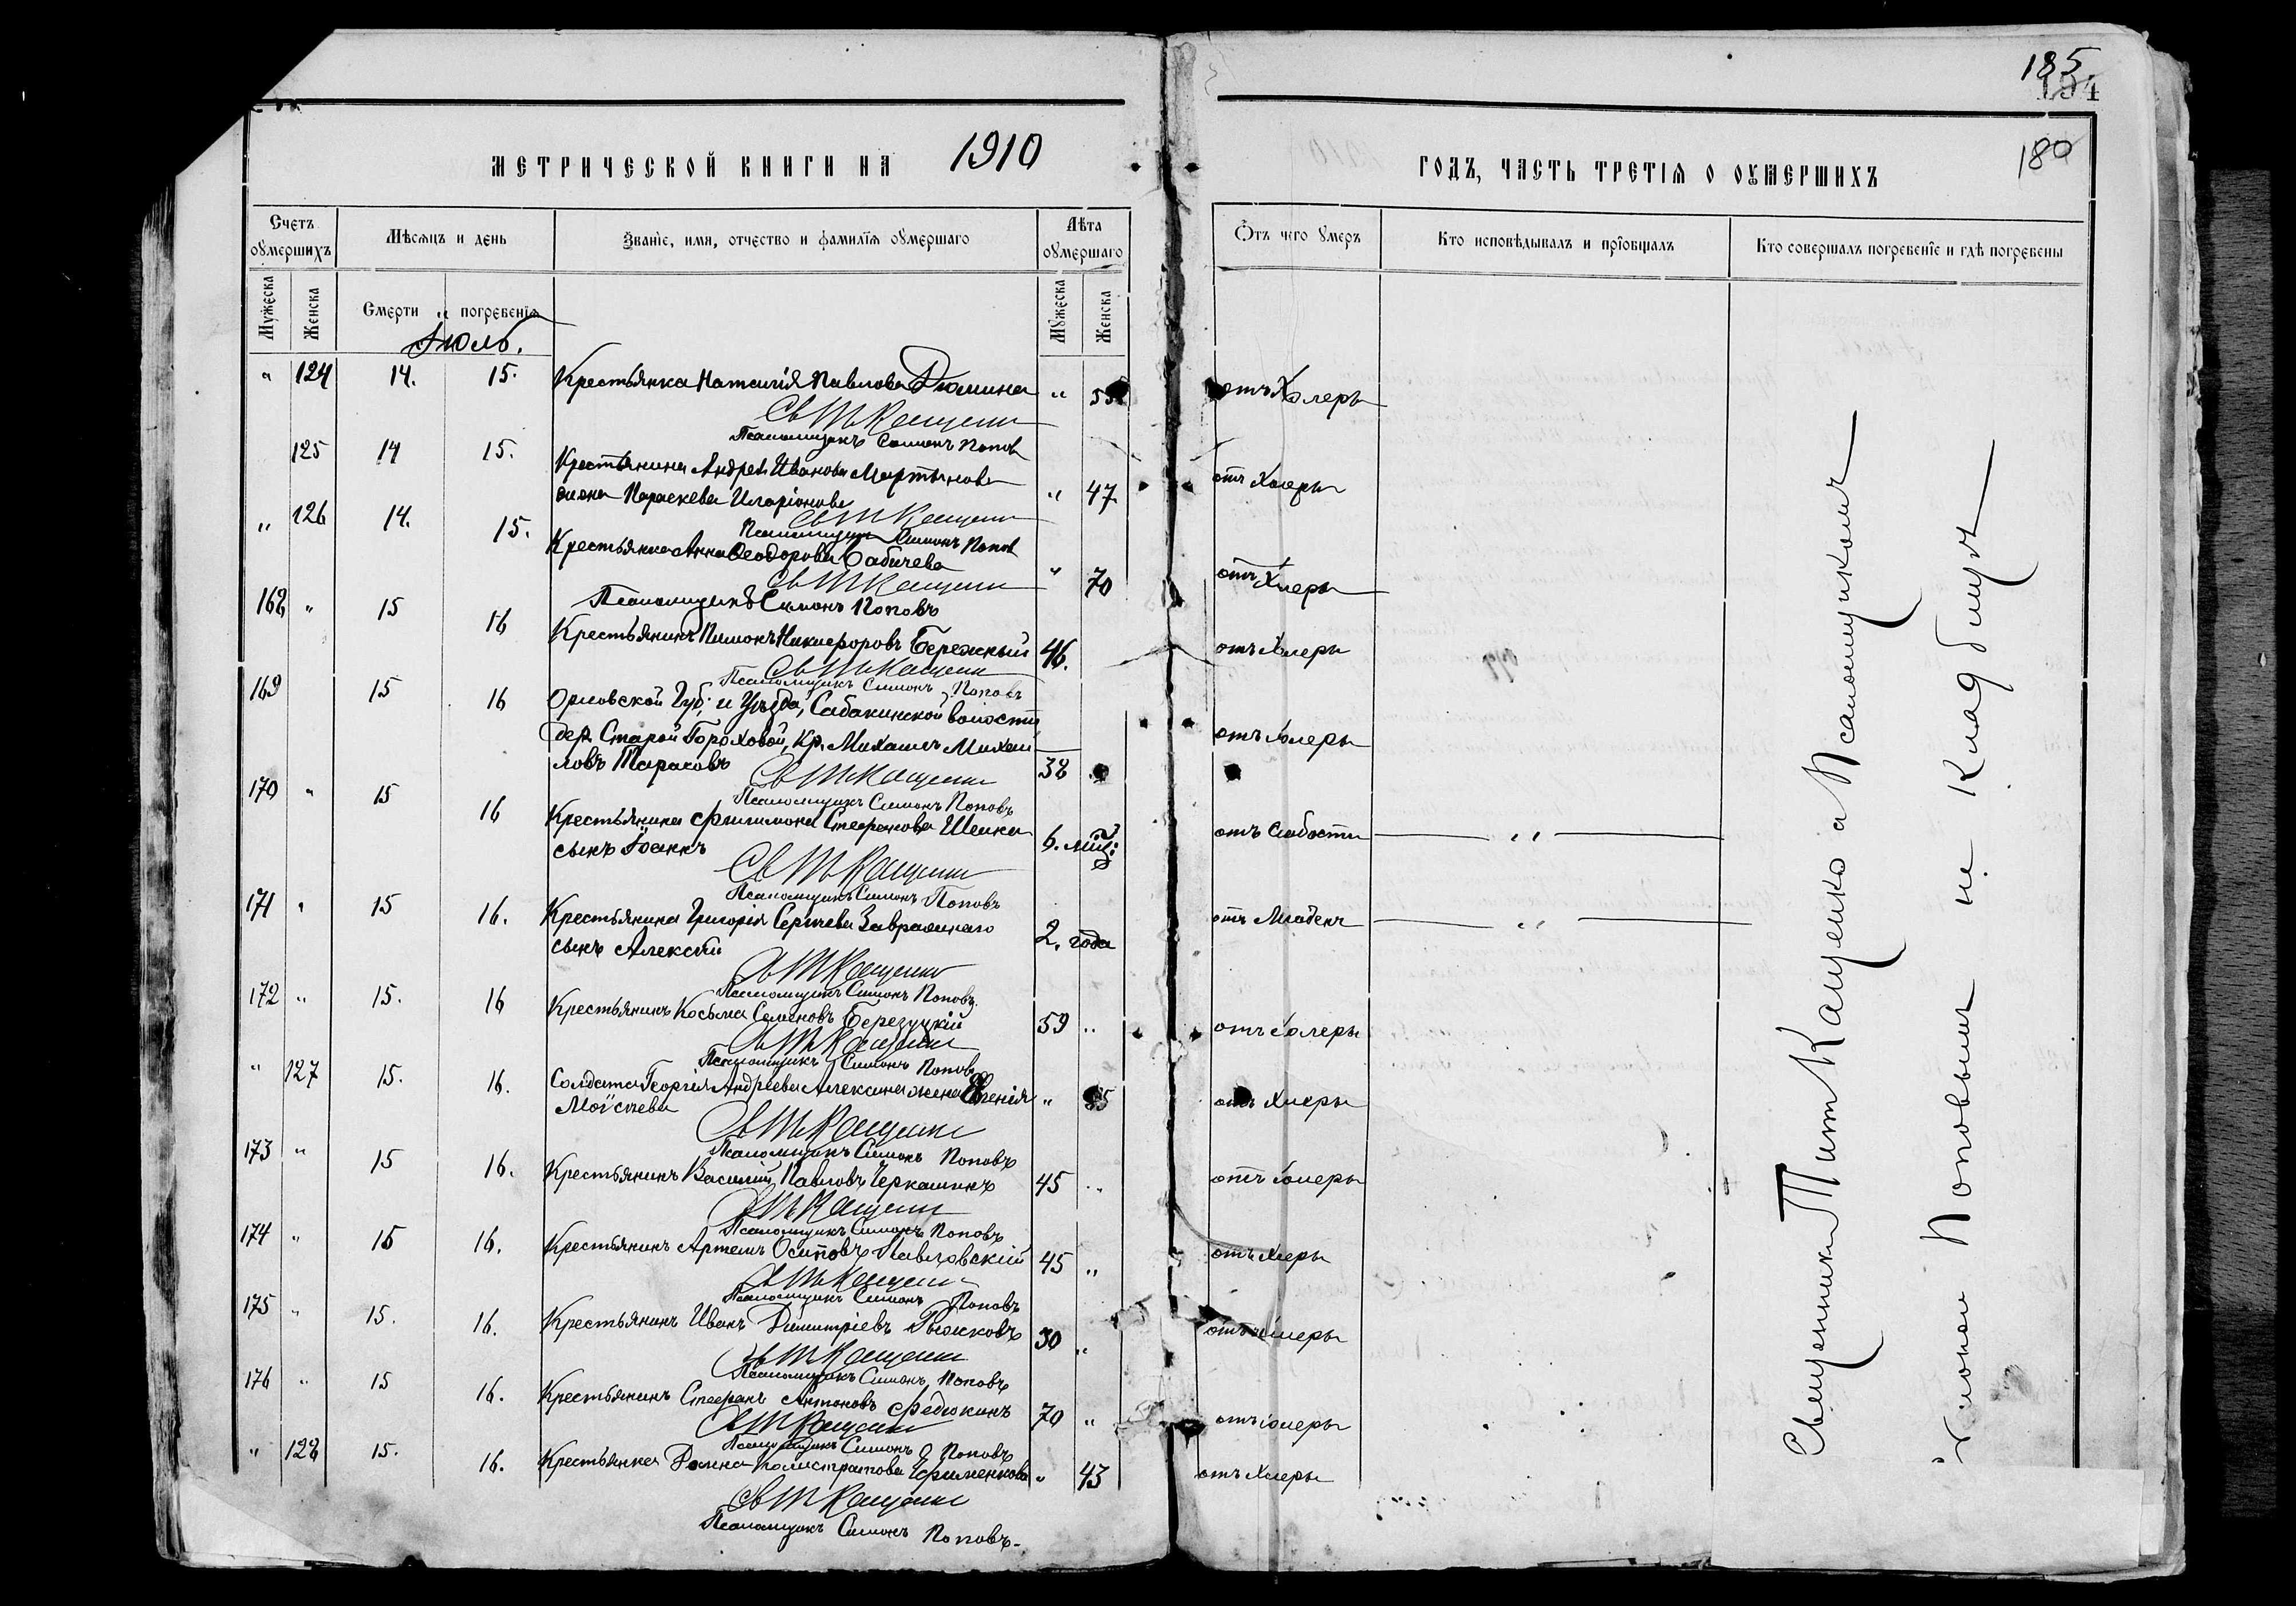 185.
134
180
МЕТРИЧЕСКОЙ КНИГИ НА 1910
ГОДЪ, ЧАСТЬ ТРЕТІЯ О ОУМЕРШИХЪ
Счетъ оумершихъ
Мѣсяцъ и день
Званіе, имя, отчество и фамилія оумершаго
Лѣта оумершаго
Отъ чего умеръ
Кто исповѣдывалъ и пріобщалъ
Кто совершалъ погребеніе и гдѣ погребены
Мужеска Женска Смерти и погребенія Мужеска Женска
Іюль.
" 124 14. 15. Крестьянка Наталія Павлова Дюмина " отъ Холеры
Св Т Кащенко
Псаломщикъ Симонъ Попов
125 14 15. Крестьянина Андрея Иванова Мартынова
жена Параскева Иларіонова " 47. отъ Холеры
Св Т Кащенко
Псаломщикъ Симонъ Попов
" 126 14. 15. Крестьянка Анна Ѳеодорова Бабичева " 70 отъ Холеры
Св Т Кащенко
Псаломщикъ Симонъ Поповъ
168 " 15 16 Крестьянинъ Пимонъ Никифоровъ Бережный 46. отъ Холеры
Св Т Кащенко
Псаломщикъ Симонъ Поповъ
169 15 16 Орловской Губ. и Уѣзда, Сабакинской волости
дер. Старой Гороховой, Кр. Михаилъ Михаи
ловъ Тарасовъ 38 отъ Холеры
Св Т Кащенко
Псаломщикъ Симонъ Поповъ
170 " 15 16 Крестьянина Филимона Стефанова Шейка
сынъ Іоаннъ 6. мѣс: отъ Слабости " 
Св Т Кащенко
Псаломщикъ Симонъ Поповъ
171 " 15 16. Крестьянина Григорія Сергѣева Завражнаго
сынъ Алексѣй 2. года отъ Младенч "
Св Т Кащенко
Псаломщикъ Симонъ Поповъ.
172 " 15. 16 Крестьянинъ Косьма Семеновъ Березуцкій 59 " отъ Холеры
Св Т Кащенко
Псаломщикъ Симонъ Поповъ
" 127 15. 16. Солдата Георгія Андреева Алексина жена Евгенія
Моѵсѣева " отъ Холеры
Св Т Кащенко
Псаломщикъ Симонъ Поповъ
173 " 15 16. Крестьянинъ Василій Павловъ Черкашинъ 45 " отъ Холеры
Св Т Кащенко
Псаломщикъ Симонъ Поповъ
174 " 15 16. Крестьянинъ Артемъ Осиповъ Павловскій 45 " отъ Холеры
Св Т Кащенко
Псаломщикъ Симонъ Поповъ
175 " 15. 16. Крестьянинъ Иванъ Димитріевъ Рыжковъ 30 " отъ Холеры
Св Т Кащенко
Псаломщикъ Симонъ Поповъ
176 " 15 16. Крестьянинъ Стефанъ Антоновъ Федюкинъ 70 " отъ Холеры
Св Т Кащенко
Псаломщикъ Симонъ Поповъ
" 128 15. 16. Крестьянка Домна Калистратова Ефименкова " 43 отъ Холеры
Св Т Кащенко
Псаломщикъ Симонъ Поповъ.
Священникъ Титъ Кащенко а Псаломщикомъ
Симономъ Поповымъ на Кладбищѣ